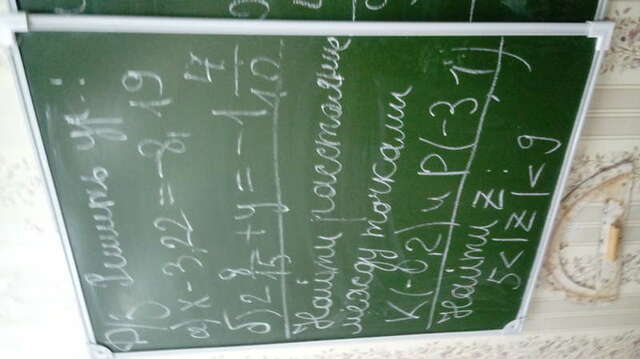 Р/з Решить ур.:
а) x - 3,22 = -8,19
б) 2 8/15 + y = -1 7/10
Найти расстояние
между точками
K(-0,2) и P(-3,1)
Найти z:
5<|z|<9